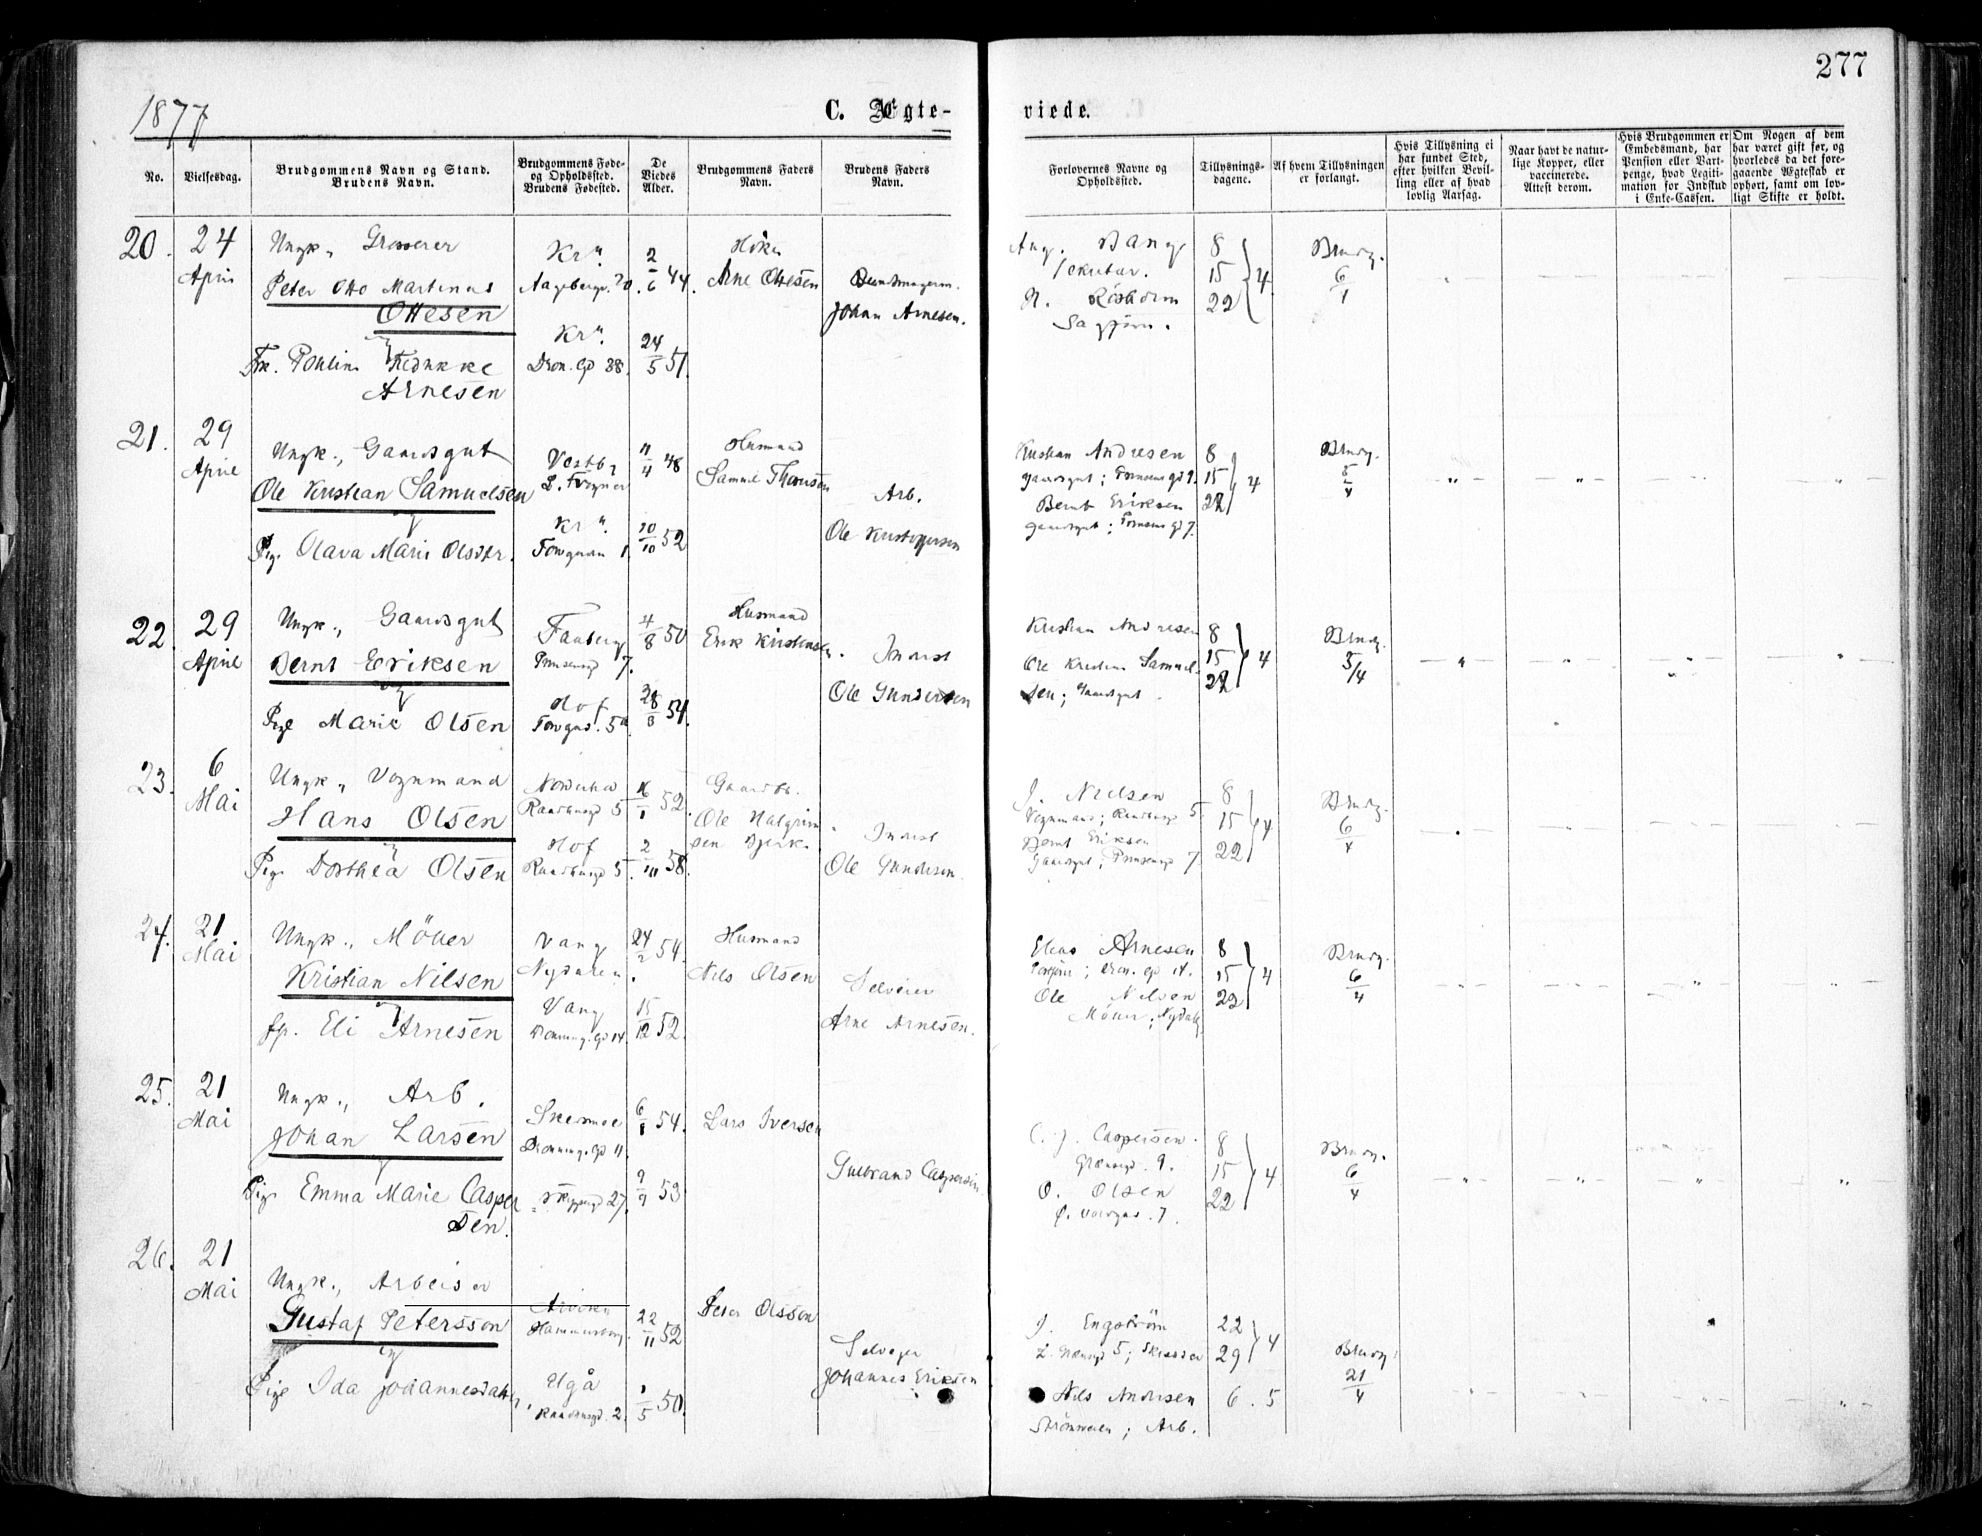 277
1877
C. Ægte-
viede.
No.
Vielsesdag.
Brudgommens Navn og Stand.
Brudens Navn.
Brudgommens Føde-
og Opholdssted.
Brudens Fødested.
De
Viedes
Alder.
Brudgommens Faders
Navn.
Brudens Faders
Navn.
Forlovernes Navne og
Opholdssted.
Tillysnings-
dagene.
Af hvem Tillysningen
er forlangt.
Hvis Tillysning ei
har fundet Sted,
efter hvilken Bevil-
ling eller af hvad
lovlig Aarsag.
Naar havt de natur-
lige Kopper, eller
vaccinerede.
Attest derom.
Hvis Brudgommen er
Embedsmand, har
Pension eller Vart-
penge, hvad Legiti-
mation for Indskud
i Enke-Cassen.
Om Nogen af dem
har været gift før, og
hvorledes da det fore-
gaaende Ægteskab er
ophørt, samt om lov-
ligt Skifte er holdt.
20.
24
April
Ungk., Grosserer
Peter Otto Martinus
Ottesen
og
Frk.
Arnesen
Kra.
2/6 44.
Kra.
Dron. Gd 38.
24/5 51.
Arne Ottesen
Buntmagerm.
Johan Arnesen.
Aug. Bang
8
15
22
4
Brudg.
21.
29
April
Ungk., Gaardsgut
Ole Kristian Samuelsen
og
Pige Olava Marie Olsdtr.
Vestby
11/4 48
Kra.
10/10 52
Husmand
Samuel
Arb.
Ole Kristofersen
Kristian Andresen
Gaardsgut; Prinsens gd 9.
Bernt Eriksen
Gaardsgut; Prinsens Gd 7.
8
15
22
4
Brudg.
5/4
22.
29
April
Ungk., Gaardsgut
Bernt Eriksen
og
Pige Marie Olsen
Faaberg
Prinsensgd 7.
4/8 50
Hof
28/8 54.
Husmand
Erik Kristensen
Indrst
Ole Gundersen
Kristian Andresen
Ole Kristian Samuel-
sen; Gaardsgut.
8
15
22
4
Brudg.
5/4
23.
6
Mai
Ungk., Vognmand
Hans Olsen
og
Pige Dorthea Olsen
Randsusgd 5
16/1 52.
Hof
2/10 58.
Gaardbr.
Indrst
Ole Gundersen
J. Nielsen
Vognmand;
Bernt Eriksen
Gaardsgut; Prinsensgd 7.
8
15
22
4
Brudg.
6/4
24.
21
Mai
Ungk., Möller
Kristian Nilsen
og
Eli Arnesen
Vang
Nydalen.
24/2 54.
Vang
Dronning. Gd 14.
15/12 52.
Husmand
Nils Olsen
Selveier
Arne Arnesen.
Elias Arnesen
Dron. Gd 14.
Ole Nilsen
Möller; Nydalen
8
15
22
4
Brudg.
6/4
25.
21
Mai
Ungk., Arb.
Johan Larsen
og
Pige Emma Marie Casper
sen.
Skedsmoe
Dronning. Gd 11.
6/8 54.
Skippergd 27.
9/9 53
Lars Iversen
Gulbrand Caspersen
Caspersen.
Grændsegd. 9.
O. Olsen
8
15
22
4
Brudg.
6/4
26.
21
Mai
Ungk., Arbeider
Gustaf Petersson
og
Pige Ida Johannesdatter,
Arvika
Hammersborg.
22/11 52
1/5 50.
Peter Olsson
Selveger
Johannes Eriksen
J. Engström
Nils Andersen
Strömveien; Arb.
22
29
4
6. 5
Brudg.
21/4